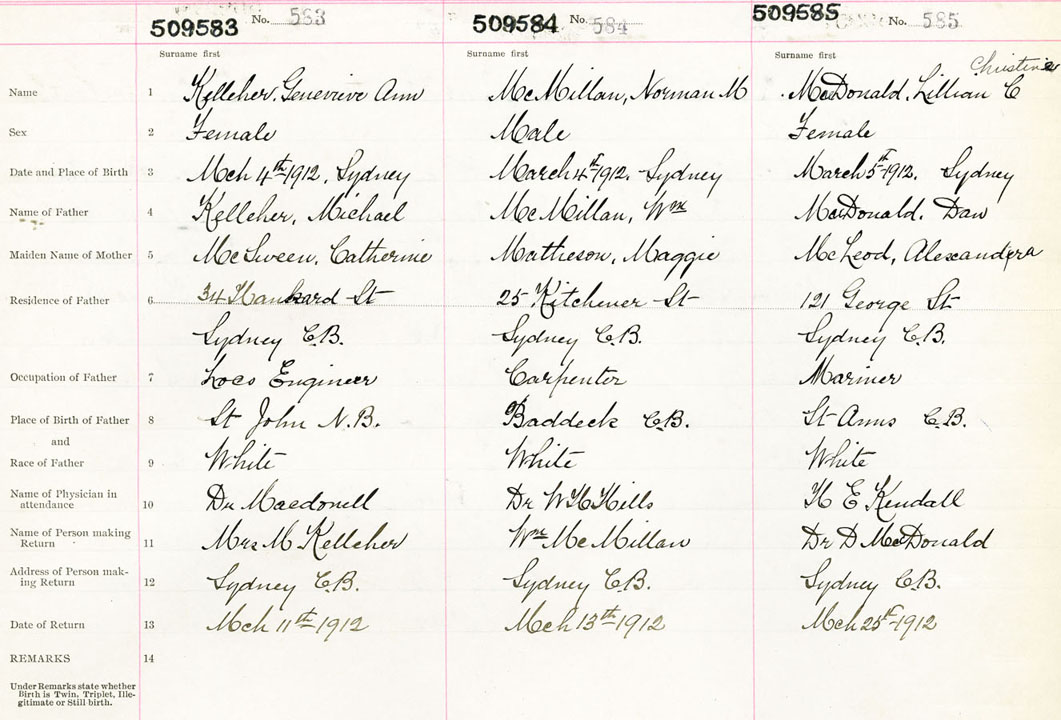 509583 No. 583 509584 No. 584 509585 No. 585
Surname first Surname first Surname first
Christina
Name 1 Kelleher, Genevieve Ann McMillan, Norman M McDonald, Lillian C
Sex 2 Female Male Female
Date and Place of Birth 3 Mch 4th 1912, Sydney March 4th 1912, Sydney March 5th 1912, Sydney
Name of Father 4 Kelleher, Michael McMillan, Wm McDonald, Dan
Maiden Name of Mother 5 McSween, Catherine Matheson, Maggie McLeod, Alexandra
Residence of Father 6 34 Hankard St 25 Kitchener St 121 George St
Sydney C.B. Sydney C.B. Sydney C.B.
Occupation of Father 7 Loco Engineer Carpenter Mariner
Place of Birth of Father 8 St John N.B. Baddeck C.B. St Anns C.B.
and
Race of Father 9 White White White
Name of Physician in
attendance 10 Dr Macdonell Dr W H Hills H E Kendall
Name of Person making
Return 11 Mrs M Kelleher Wm McMillan Dr D McDonald
Address of Person mak-
ing Return 12 Sydney C.B. Sydney C.B. Sydney C.B.
Date of Return 13 Mch 11th 1912 Mch 13th 1912 Mch 25th 1912
REMARKS 14
Under Remarks state whether
Birth is Twin, Triplet, Ille-
gitimate or Still birth.